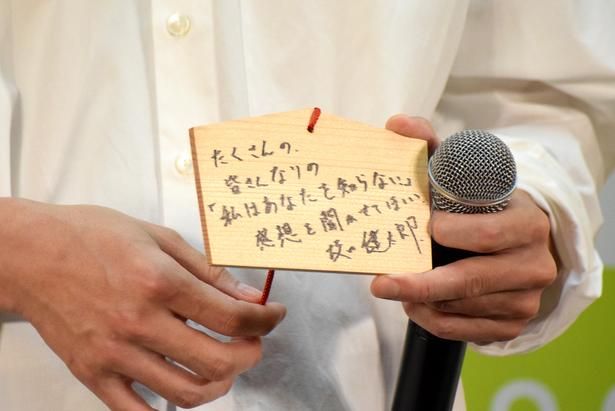 たくさんの、
皆さんなりの
「私はあなたを知らない」
感想を聞かせてほしい
坂 健太郎